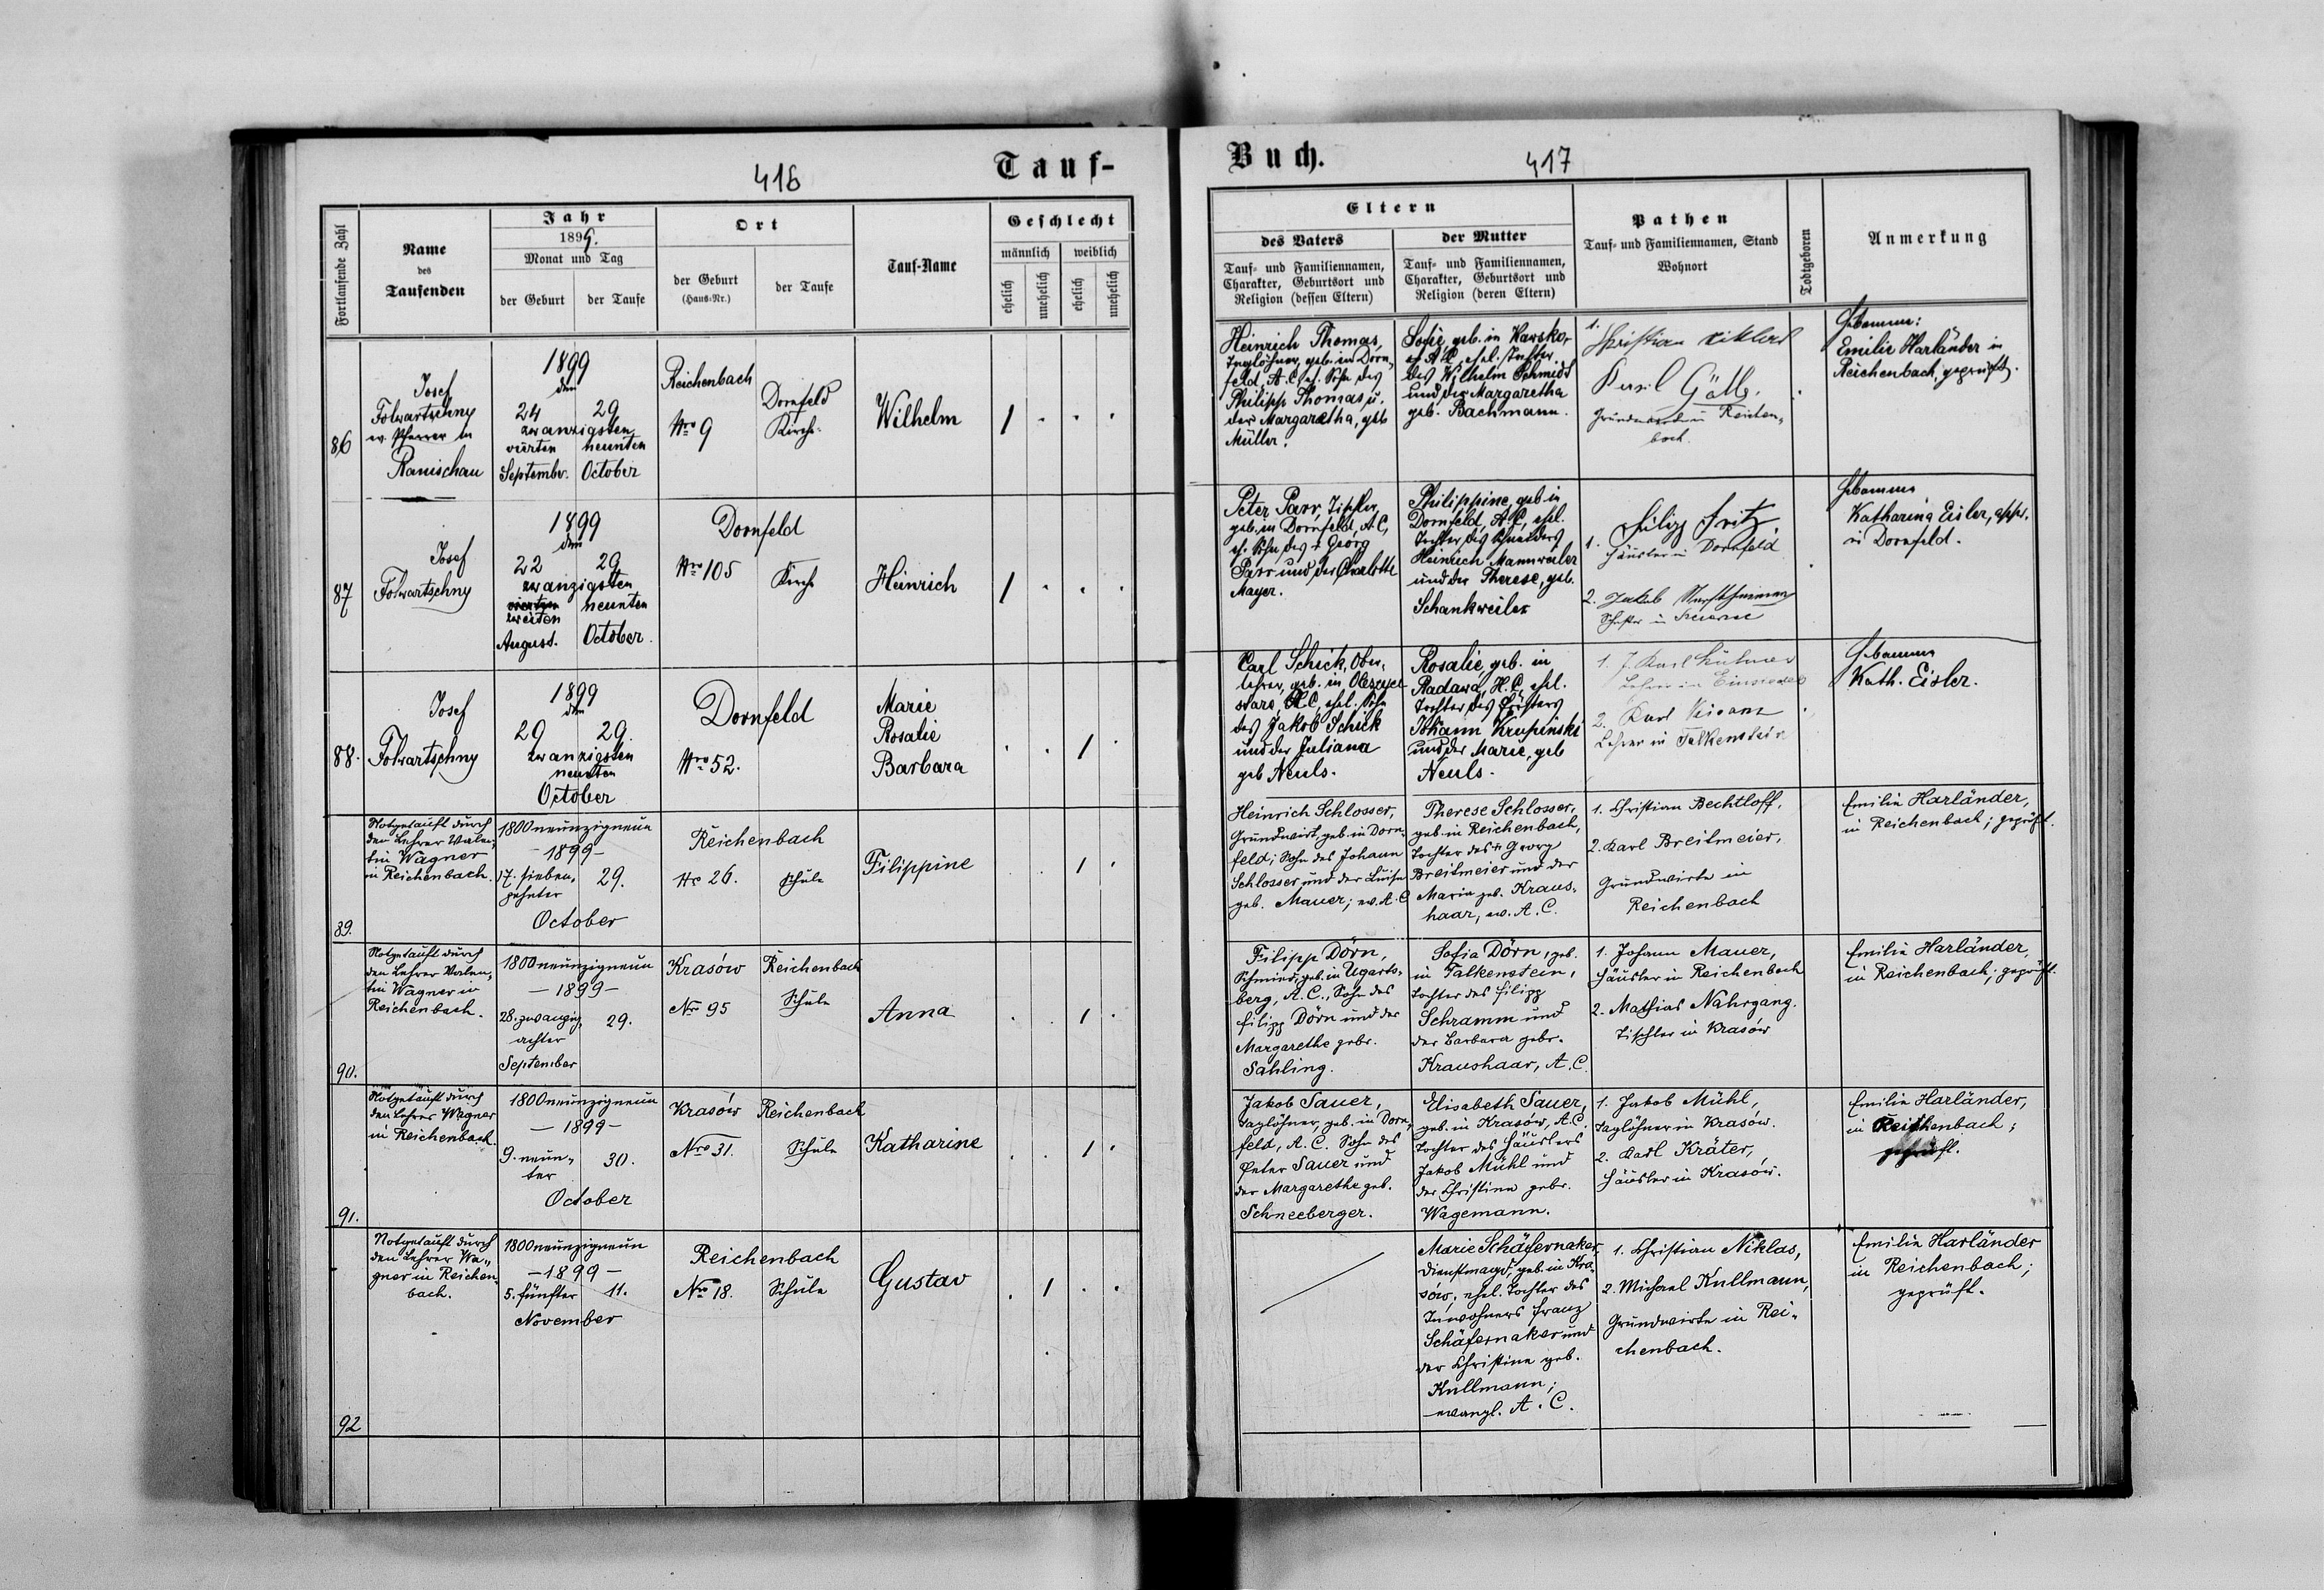 416
Tauf-
Fortlaufende Zahl
Name
des
Taufenden
Jahr
1899.
Monat und Tag
der Geburt
der Taufe
Ort
der Geburt
(Haus-Nr.)
der Taufe
Tauf-Name
Geschlecht
männlich
weiblich
ehelich
unehelich
ehelich
unehelich
86
Josef
Folwartschny
ev. Pfarrer in
Ranischau
1899
den
24 29
zwanzigsten
vierten neunten
Septembr. October
Reichenbach
Nro 9
Dornfeld
Kirche
Wilhelm
1
87
Josef
Folwartschny
1899
den
22 29
zwanzigsten
vierten neunten
zweiten
August. October.
Dornfeld
Nro 105
Kirche
Heinrich
1
88.
Josef
Folwartschny
1899
den
29 29.
zwanzigsten
neunten
October
Dornfeld
Nro 52.
Marie
Rosalie
Barbara
1
89.
Notgetauft durch
den Lehrer Valen-
tin Wagner
in Reichenbach.
1800neunzigneun
-1899-
17. sieben-
zehnter
29.
October
Reichenbach
Nro 26.
Schule
Filippine
1
90.
Notgetauft durch
den Lehrer Valen-
tin Wagner in
Reichenbach.
1800neunzigneun
-1899-
28. zwanzig
achter
29.
September
Krasów
Nr 95
Reichenbach
Schule
Anna
1
91.
Notgetauft durch
den Lehrer Wagner
in Reichenbach.
1800neunzigneun
-1899-
9. neun-
ter
30.
October
Krasów
Nro 31.
Reichenbach
Schule
Katharine
1
92
Notgetauft durch
den Lehrer Wa-
gner in Reichen
bach.
1800neunzigneun
-1899-
5. fünfter 11.
November
Reichenbach
Nro 18. Schule
Gustav
1
Buch.
417
Eltern
des Vaters
Tauf- und Familiennamen,
Charakter, Geburtsort und
Religion (dessen Eltern)
der Mutter
Tauf- und Familiennamen,
Charakter, Geburtsort und
Religion (deren Eltern)
Pathen
Tauf- und Familiennamen, Stand
Wohnort
Todtgeboren
Anmerkung
Heinrich Thomas,
Taglöhner, geb. in Dorn-
feld, A.C., eh. Sohn des
Philipp Thomas, u.
der Margaretha, geb
Müller.
Sofie, geb. in
A.C., ehel. Tochter
des Wilhelm Schmidt
und der Margaretha
geb. Bachmann.
1.
Christian
Karl Götz,
Reichen-
bach.
Hebamme:
Emilie Harländer in
Reichenbach, geprüft.
Peter Parr, Tischler,
geb. in Dornfeld, A.C,
eh. Sohn des + Georg
Parr und der Charlotte
Mayer.
Philippine, geb in
Dornfeld, A.C, ehel.
Tochter des Schneiders
Heinrich Mannweiler
und der Therese, geb.
Schankweiler
1. Filipp Fritz,
Häusler in Dornfeld
2. Jakob
in
Hebamme
Katharina Eisler, appr.
in Dornfeld.
Carl Schick, Ober-
lehrer, geb. in
stare, A.C, ehel. Sohn
des Jakob Schick
und der Juliana
geb Neuls.
Rosalie, geb. in
Radawa, H.C, ehel.
Tochter des Försters
Johann Krupinski
und der Marie, geb
Neuls.
1. J. Karl
Lehrer in Einsiedel
2. Karl
Lehrer in Falkenstein
Hebamme
Kath. Eisler.
Heinrich Schlosser,
Grundwirt, geb. in Dorn-
feld; Sohn des Johann
Schlosser und der Luise
geb. Mauer; ev. A.C
Therese Schlosser,
geb. in Reichenbach,
Tochter des + Georg
Breitmeier und der
Maria geb. Kraus-
haar, ev. A.C.
1. Christian Bechtloff,
2. Karl Breitmeier,
Grundwirte in
Reichenbach
Emilie Harländer,
in Reichenbach; geprüft.
Filipp Dörn,
Schmied, geb. in Ugarts-
berg, A.C., Sohn des
Filipp Dörn und der
Margarethe gebr.
Sahling.
Sofia Dörn, geb.
in Falkenstein,
Tochter des Filipp
Schramm und
der Barbara gebr.
Kraushaar, A.C.
1. Johann Mauer,
Häusler in Reichenbach
2. Mathias Nahrgang.
Tischler in Krasów
Emilie Harländer,
in Reichenbach; geprüft.
Jakob Sauer,
Taglöhner, geb. in Dorn-
feld, A.C. Sohn des
Peter Sauer und
der Margarethe geb.
Schneeberger.
Elisabeth Sauer,
geb. in Krasów, A.C.
Tochter des Häuslers
Jakob Mühl und
der Christine gebr.
Wagemann.
1. Jakob Mühl,
Taglöhner in Krasów.
2. Karl Kräter,
Häusler in Krasów.
Emilie Harländer,
in Reichenbach;
geprüft.
Marie Schäfernaker
Dienstmagd, geb. in Kra-
sów, ehel. Tochter des
Inwohners Franz
Schäfernaker und
der Christine geb.
Kullmann;
evangl. A.C.
1. Christian Niklas,
2. Michael Kullmann,
Grundwirte in Rei-
chenbach.
Emilie Harländer
in Reichenbach;
geprüft.